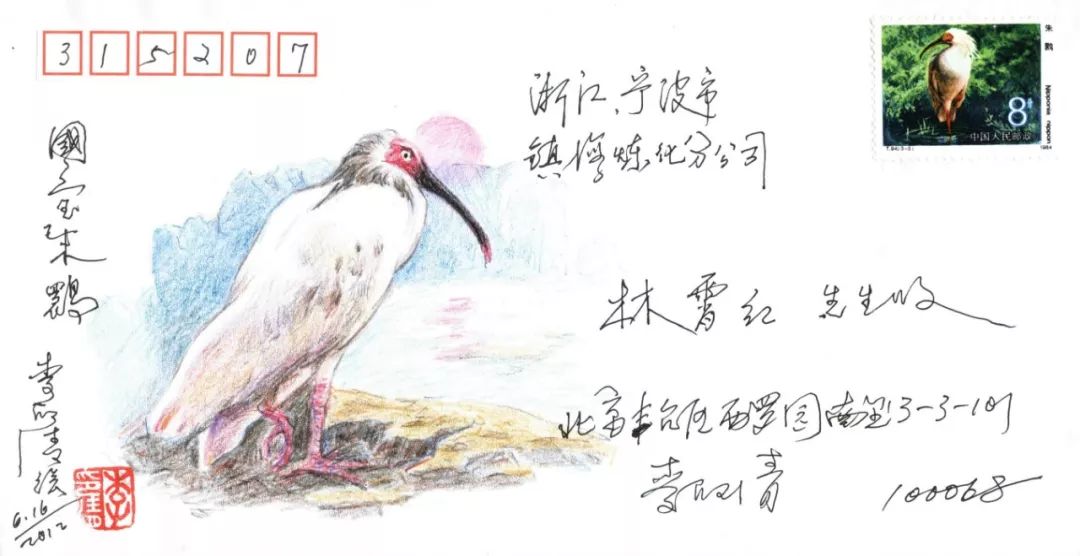 315207
浙江宁波市
镇海炼化分公司
林霄红 先生收
北京丰台区西罗园南里3-3-101
李 青 100068
國宝朱鹮
李 青 绘
6.16
2012
朱鹮
Nipponia nippon
8分
中国人民邮政
T.94(3-3)
1984